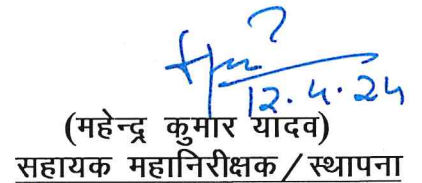 12.4.24
(महेन्द्र कुमार यादव)
सहायक महानिरीक्षक/स्थापना